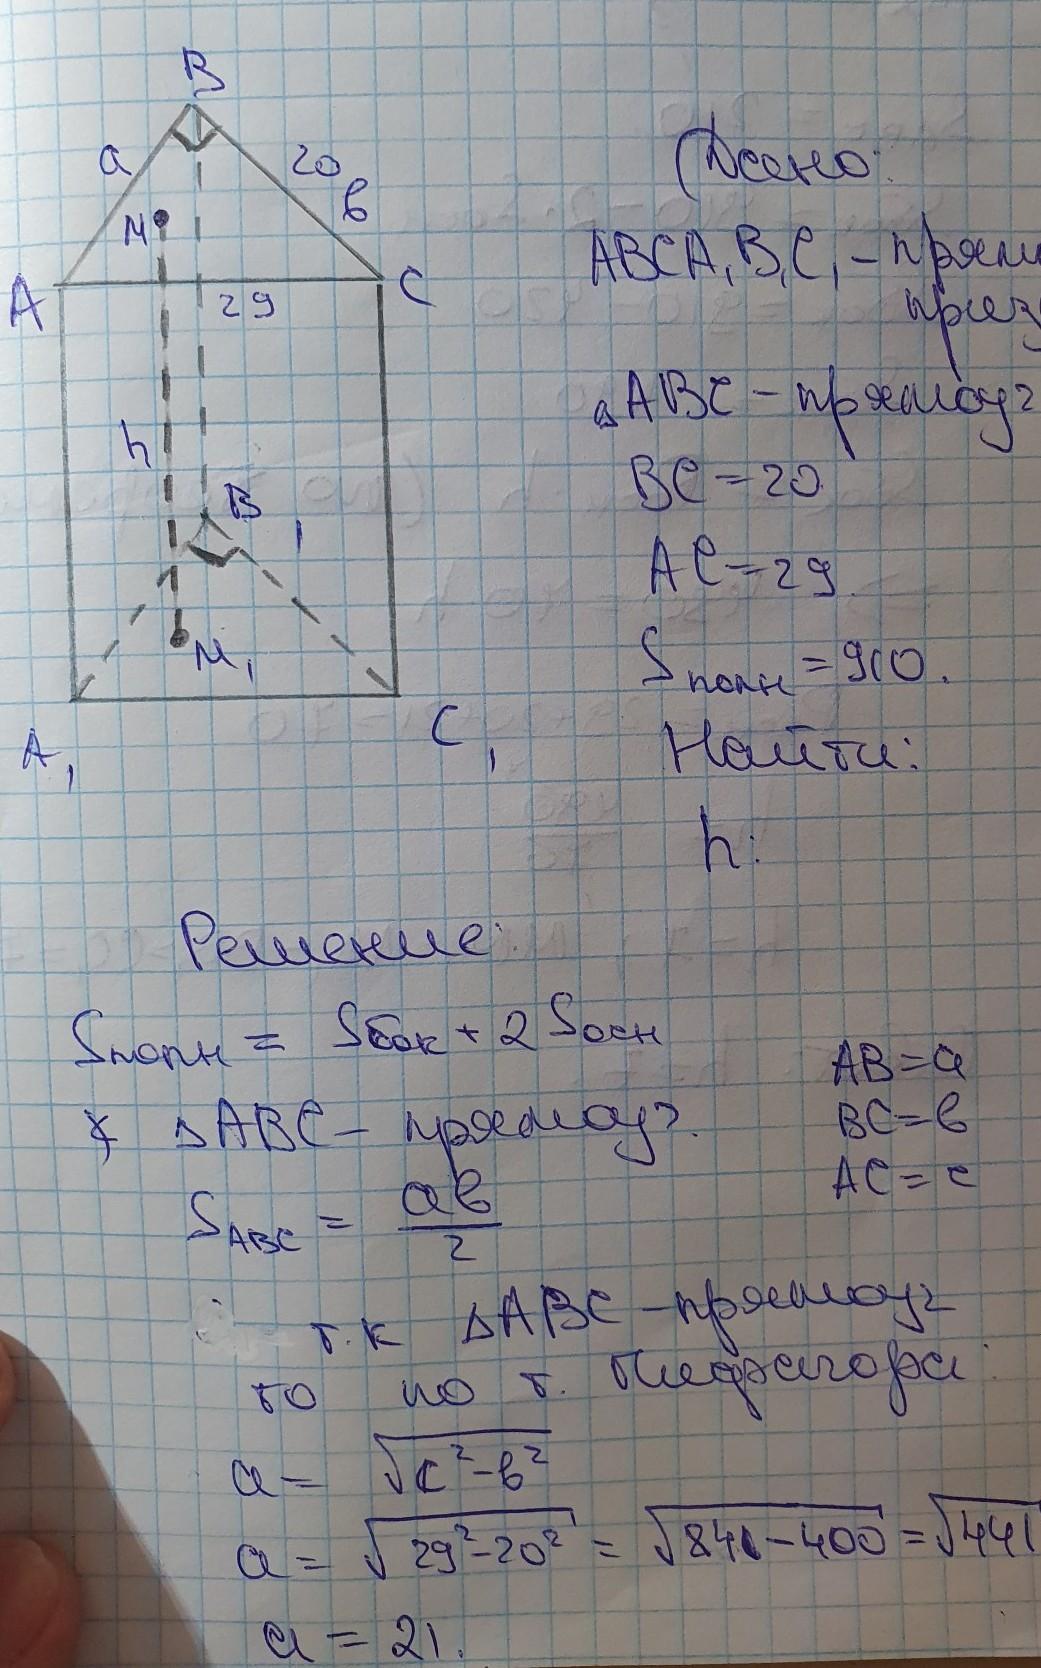 B
a
20
в
M
A
29
C
h
B₁
M₁
A₁
C₁
Дано:
ABCA₁B₁C₁ – прям
приз
△ABC – прямоуг
BC = 20
AC = 29.
Sполн = 910.
Найти:
h:
Решение:
Sполн = Sбок + 2 Sосн
△ABC – прямоуг.
AB = a
BC = в
AC = c
S_ABC = aв/2
т.к △ABC – прямоуг
то по т. Пифагора:
a = √c² - в²
a = √29² - 20² = √841 - 400 = √441
a = 21.